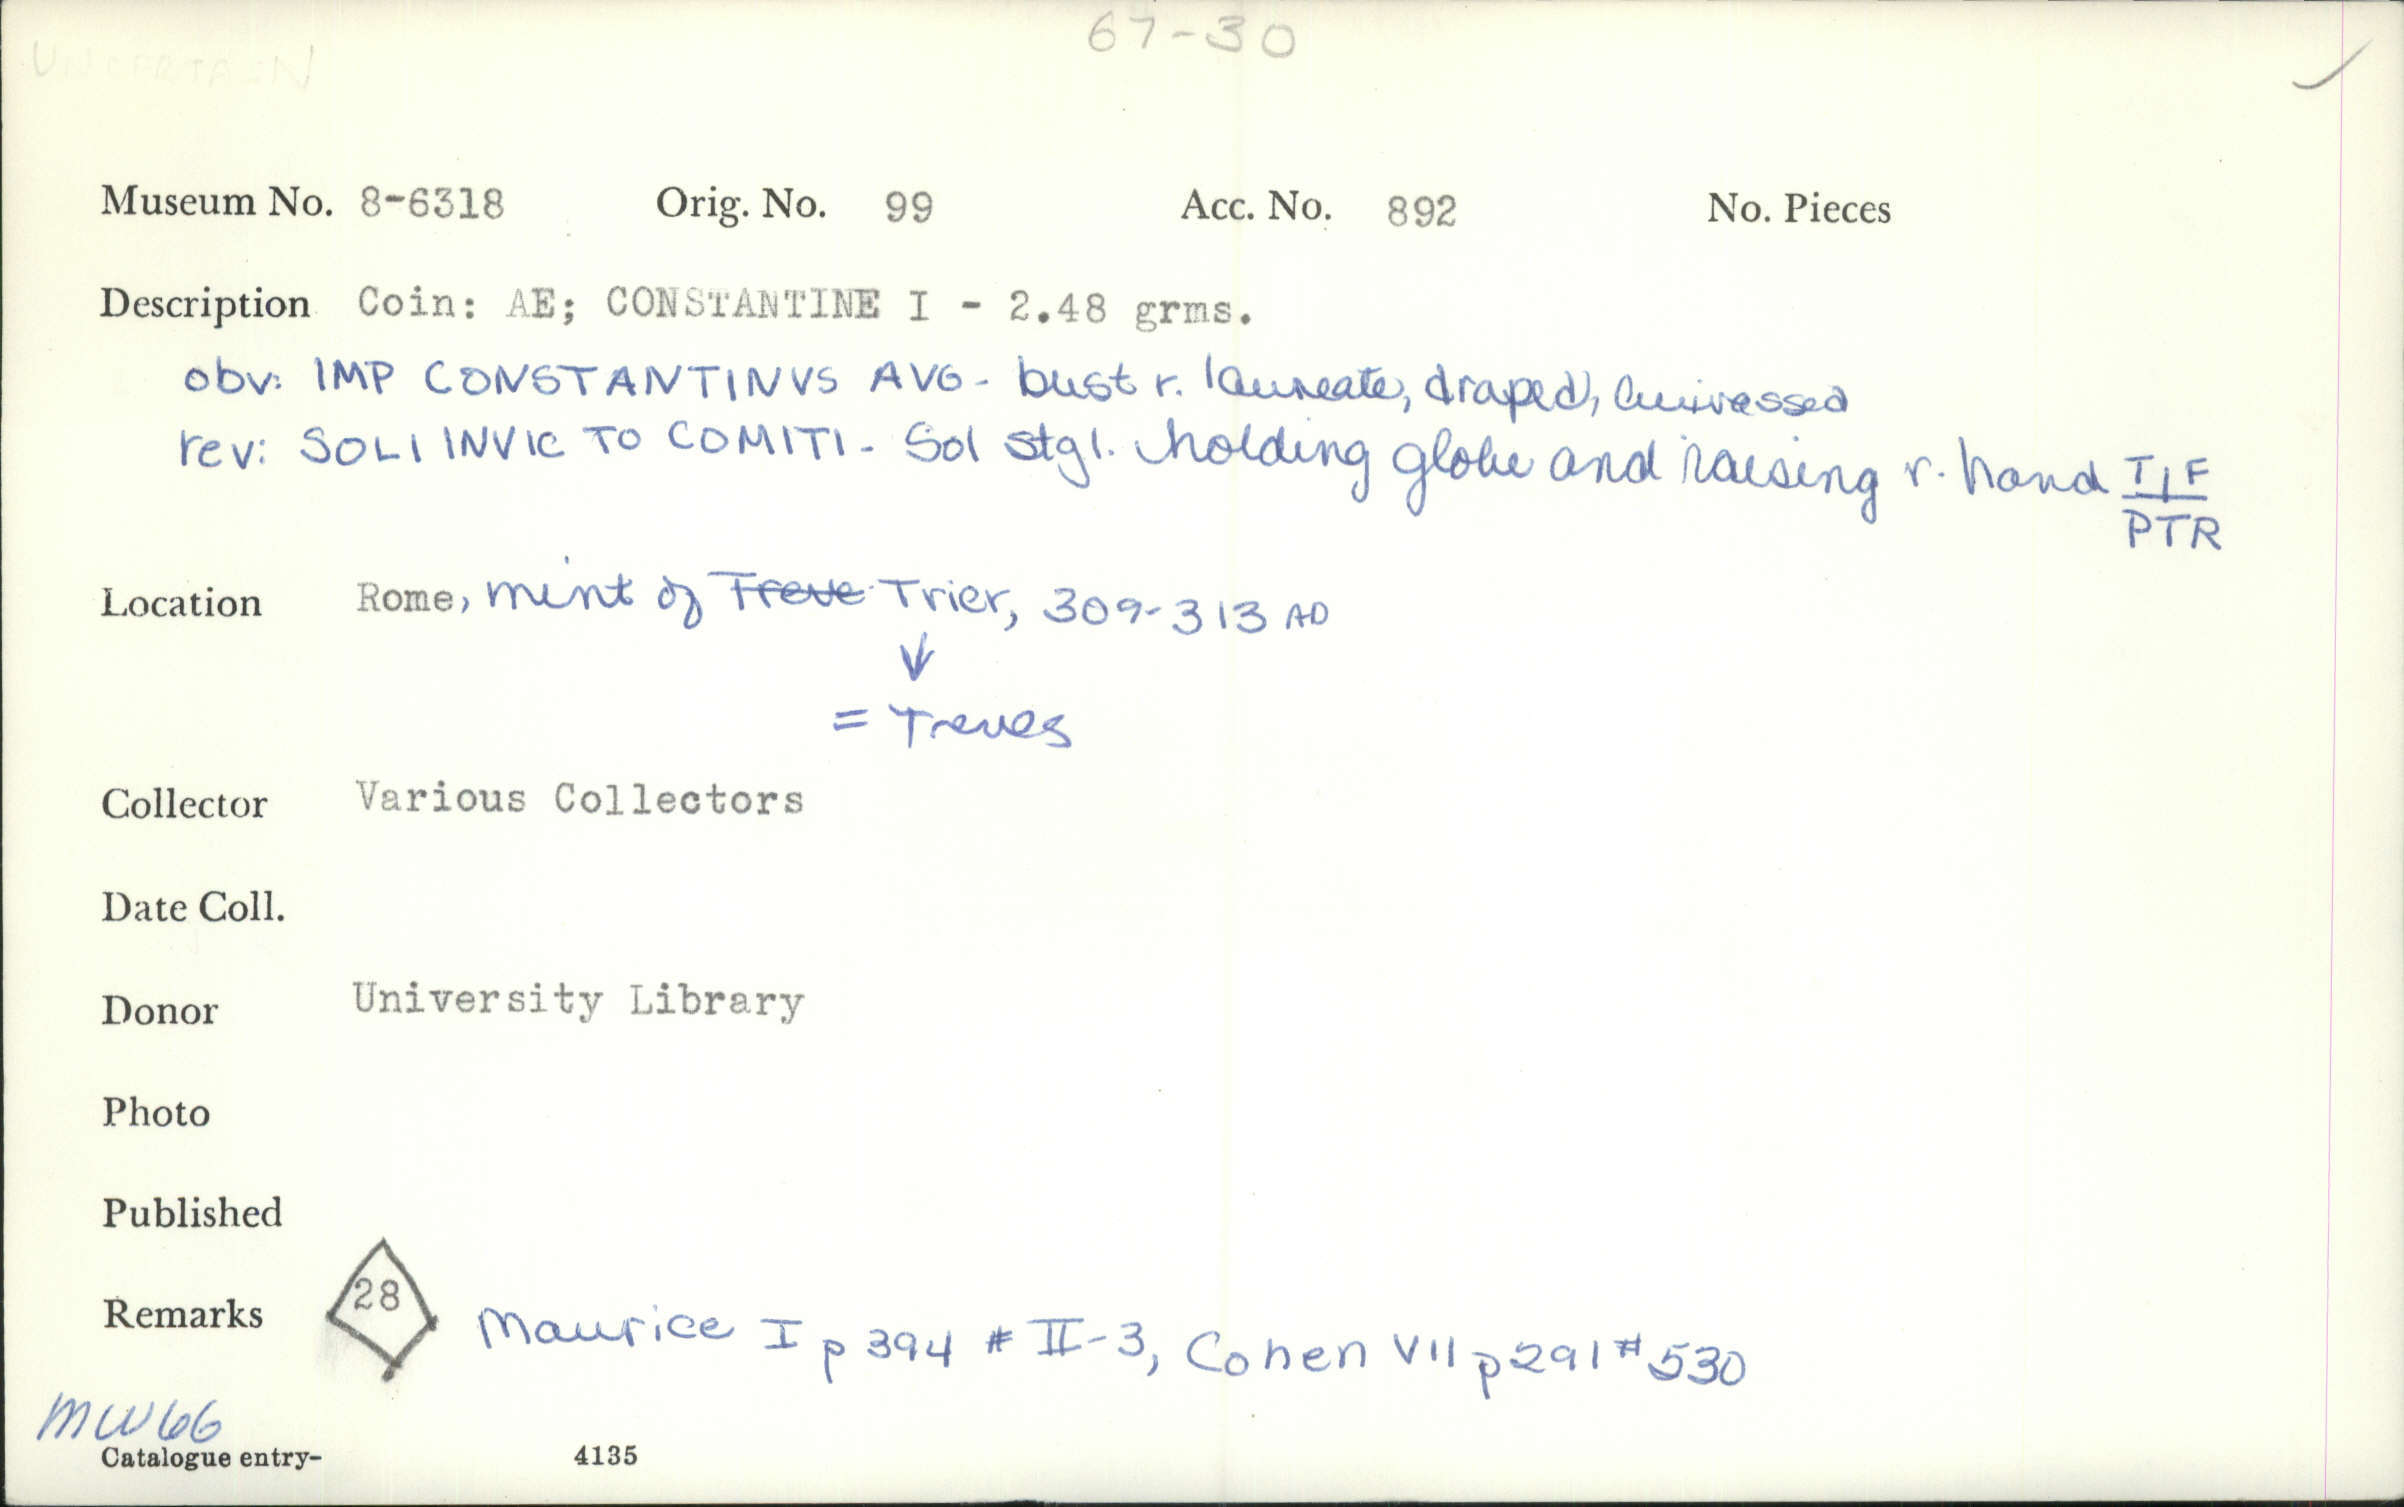 67-30
UNCERTAIN
Museum No. 8-6318 Orig. No. 99 Acc. No. 892 No. Pieces
Description Coin: AE; CONSTANTINE I - 2.48 grms.
obv: IMP CONSTANTINVS AVG- bust r. laureate, draped, cuirassed
rev: SOLI INVIC TO COMITI- Sol stg l. holding globe and raising r. hand T|F
PTR
Location Rome, mint of Treve Trier, 309-313 AD
↓
= Treves
Collector Various Collectors
Date Coll.
Donor University Library
Photo
Published
Remarks 28 Maurice I p 394 # II-3, Cohen VII p 291 # 530
MW66
Catalogue entry- 4135